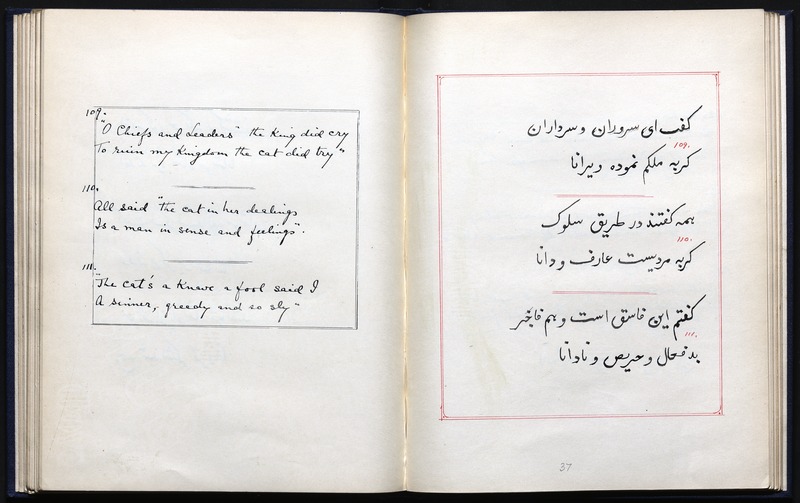 109.
"O Chiefs and Leaders" the King did cry
To ruin my Kingdom the cat did try"
110.
All said "the cat in her dealings
Is a man in sense and feelings".
111.
"The cat's a Knave a fool said I
A sinner, greedy and so sly"
گفت ای سروران و سرداران
109.
گربه ملکم نموده ویرانا
همه گفتند در طریق سلوک
110.
گربه مردیست عارف و دانا
گفتم این فاسق است و هم فاجر
111.
بدفعال و حریص و نادانا
37